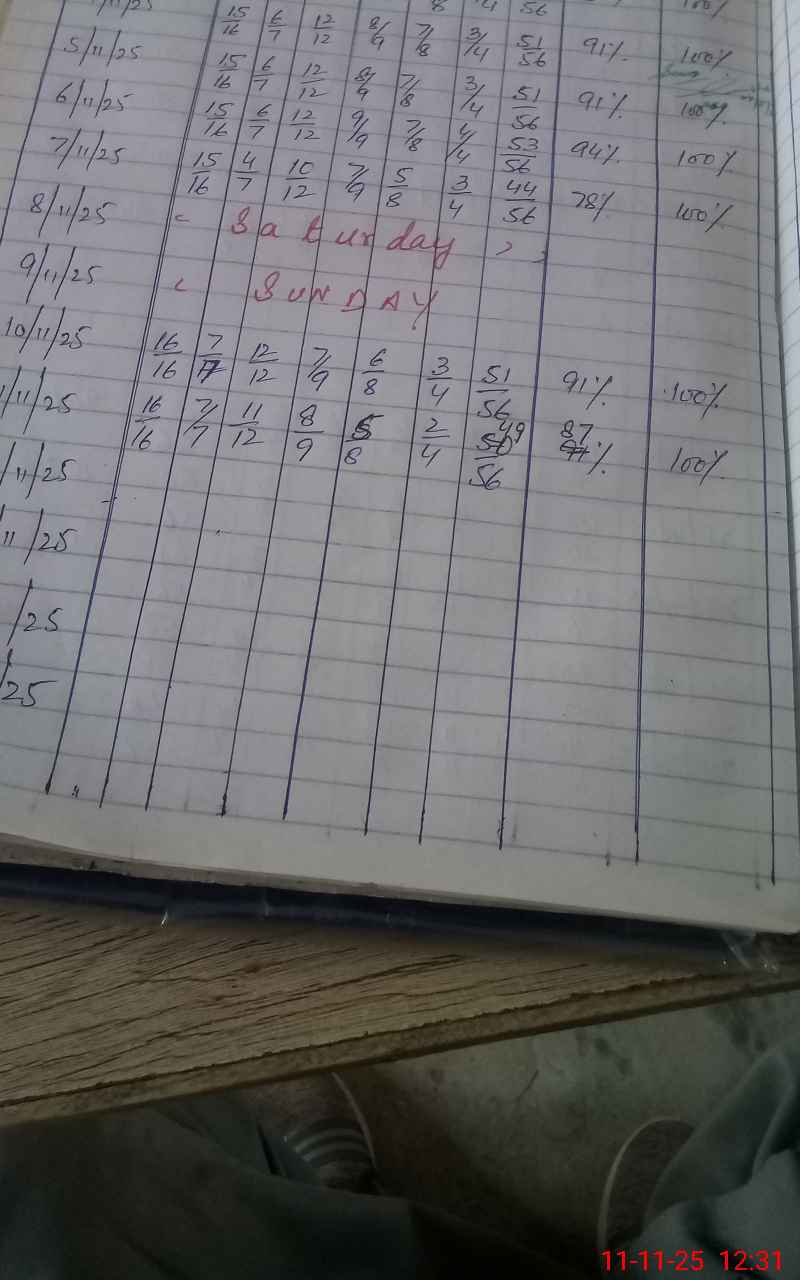 11/25 8 4 56 100%
5/11/25 15/16 6/7 12/12 8/9 7/8 3/4 51/56 91% 100%
6/11/25 15/16 6/7 12/12 8/9 7/8 3/4 51/56 91% 100%
7/11/25 15/16 6/7 12/12 9/9 7/8 4/4 53/56 94% 100%
15/16 4/7 10/12 7/9 5/8 3/4 44/56 78% 100%
8/11/25 Saturday
9/11/25 SUNDAY
10/11/25 16/16 7/7 12/12 7/9 6/8 3/4 51/56 91% 100%
/11/25 16/16 7/7 11/12 8/9 5/8 2/4 49/56 87% 100%
/11/25
11/25
/25
/25
11-11-25 12:31